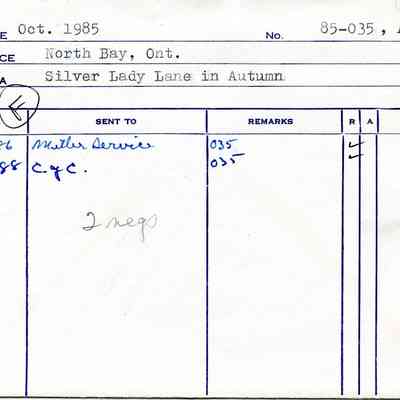 E Oct. 1985 No. 85-035,
CE North Bay, Ont.
A Silver Lady Lane in Autumn
F
SENT TO REMARKS R A
86 Service 035 ✓
88 C of C. 035 ✓
2 negs